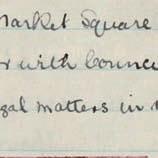 Market Square
with Counci
gal matters in